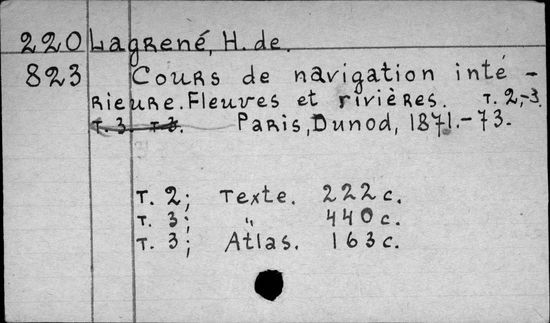 220 Lagrené, H. de.
823 Cours de navigation inté-
rieure. Fleuves et rivières. T. 2,-3.
T. 3. T. 3. Paris, Dunod, 1871.-73.
T. 2; Texte. 222 c.
T. 3; " 440 c.
T. 3; Atlas. 163 c.